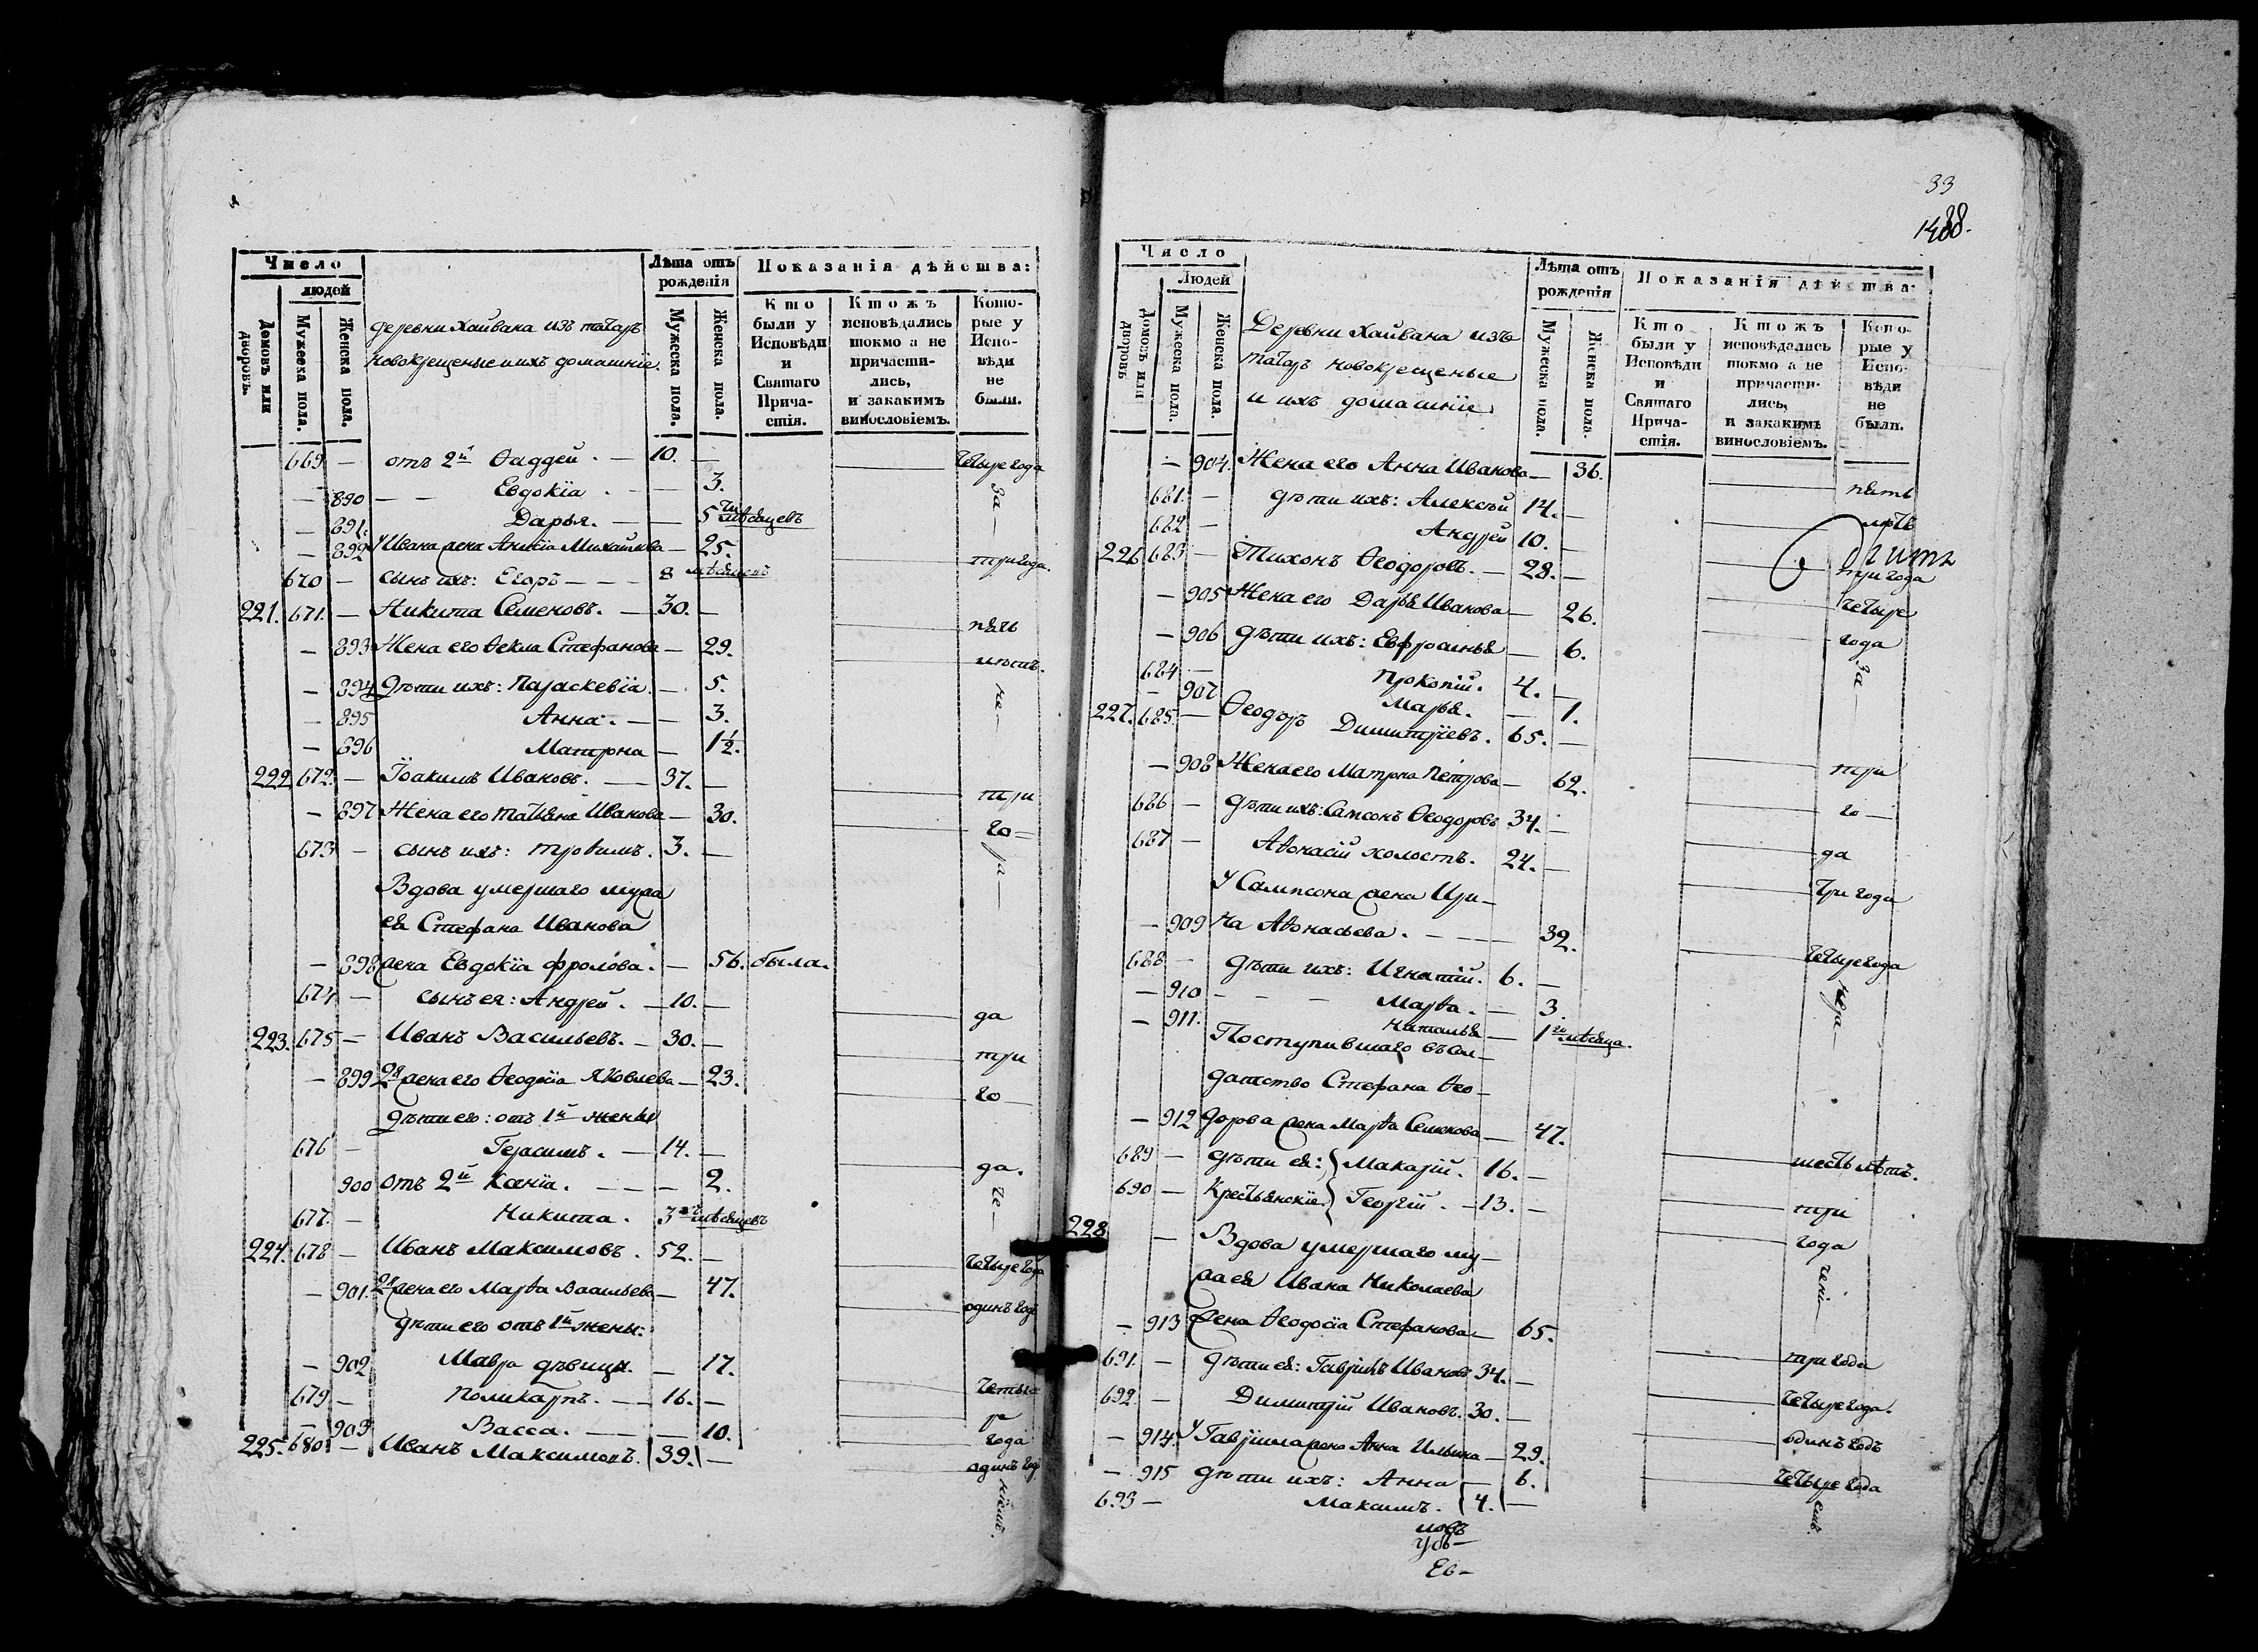 Число
людей
Домовъ или дворовъ.
Мужеска пола.
Женска пола.
деревни Хайвана изъ татаръ
новокрещеные и ихъ домашніе.
Лѣта отъ рожденія
Мужеска пола.
Женска пола.
Показанія дѣйства:
Кто были у Исповѣди и Святаго Причастія.
Ктожъ исповѣдались токмо а не причастились, и закакимъ винословіемъ.
Которые у Исповѣди не были.
669 — отъ 2й Ѳаддей. — 10. — четыре года
— 890 — — Евдокіа. — — 3. За—
— 891. Дарья. — — 5ти мѣсяцевъ
— 892 У Ивана жена Анисіа Михайлова — 25.
670 — сынъ ихъ: Егоръ — — — 8 мѣсяцевъ три года.
221. 671. — Никита Семеновъ. — 30. — пять
— 893 Жена его Ѳекла Стефанова — 29. лѣтъ.
— 894 Дѣти ихъ: Параскевіа. — 5. не—
— 895 Анна. — — 3.
— 896 Матрона — 1½.
222. 672. — Іоакимъ Ивановъ. — 37. — три
— 897 Жена его Татьяна Иванова — 30. го=
673 — сынъ ихъ: Трофимъ. 3. — ра—
Вдова умершаго мужа
ея Стефана Иванова
— 898 жена Евдокіа Фролова. — 56. была.
674 — сынъ ея: Андрей. — 10. — да
223. 675 — Иванъ Васильевъ. — 30. — три
— 899 2я жена его Ѳеодосіа Яковлева — 23. го—
дѣти его: отъ 1й жены
676 — Герасимъ. — 14. — да.
900 отъ 2й Ксеніа. — — — 2. че—
677. — Никита. 3 мѣсяцевъ
224. 678 — Иванъ Максимовъ. 52. — четыре года
— 901. 2я жена его Марѳа Васильева — 47. одинъ годъ
дѣти его отъ 1й жены:
— 902 Мавра дѣвица. — 17.
679 — Поликарпъ. — — 16. — четы
— 903 Васса. — — — 10. ре года
225. 680 — Иванъ Максимовъ. 39. — одинъ годъ
ніемъ.
33
1488.
Число
Людей
Домовъ или дворовъ
Мужеска пола.
Женска пола.
Деревни Хайвана изъ
татаръ новокрещеные
и ихъ домашніе.
Лѣта отъ рожденія
Мужеска пола.
Женска пола.
Показанія дѣйства:
Кто были у Исповѣди и Святаго Причастія.
Ктожъ исповѣдались токмо а не причастились, и закакимъ винословіемъ.
Которые у Исповѣди не были.
— 904. Жена его Анна Иванова — 36. пять
681. — дѣти ихъ: Алексѣй 14. — лѣтъ
682 — Андрей 10. —
226 683 — Тихонъ Ѳеодоровъ. — 28. — три года
— 905 Жена его Дарья Иванова — 26. четыре
— 906 дѣти ихъ: Евфросинья — 6. года
684 — Прокопій. 4. — За
— 907 Марья. — 1.
227. 685. — Ѳеодоръ Димитріевъ. 65. —
— 908 Жена его Матрона Петрова — 62. три
686 — дѣти ихъ: Сампсонъ Ѳеодоровъ 34. — го—
687 — Аѳонасій холостъ. 24. — да
У Сампсона жена Ири— три года
— 909 на Аѳонасьева. — — — 32.
688 — дѣти ихъ: Игнатій. 6. — четыре года
— 910 — — — Марѳа. — 3. нера—
— 911. Наталья — 1го мѣсяца.
Поступившаго въ сол—
датство Стефана Ѳео—
— 912 дорова жена Марѳа Семенова — 47.
689 — дѣти ея: Макарій. 16. — шесть лѣтъ.
690 — Крестьянскіе Георгій. — 13. — три
228 — Вдова умершаго му— года
жа ея Ивана Николаева чені—
— 913 жена Ѳеодосіа Стефанова — 65.
691. — дѣти ея: Гавріилъ Ивановъ 34. — три года
692. — Димитрій Ивановъ. 30. — четыре года.
— 914. У Гавріила жена Анна Ильина — 29. одинъ годъ
— 915 дѣти ихъ: Анна — 6. четыре года
693 — Максимъ. 4. — емъ.